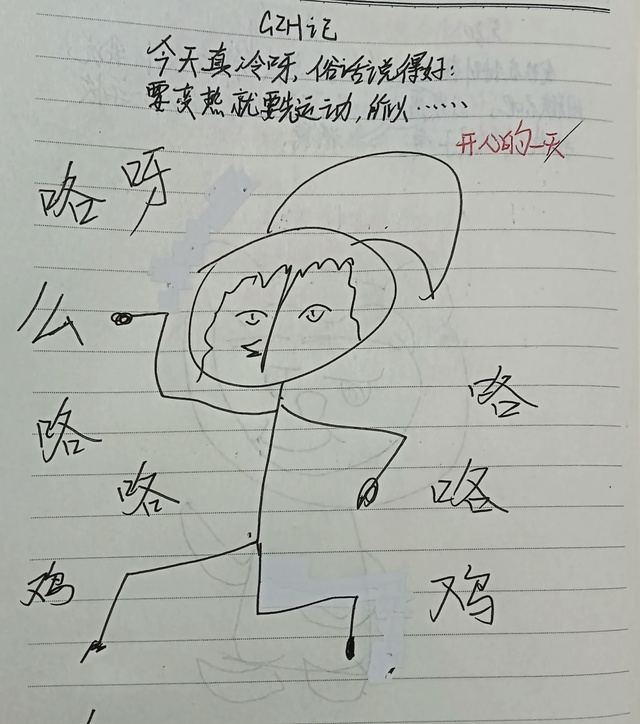 GZH记
今天真冷呀,俗话说得好:
要变热就要先运动,所以……
开心的一天
咯 呀
么
咯
咯
鸡
咯
咯
鸡